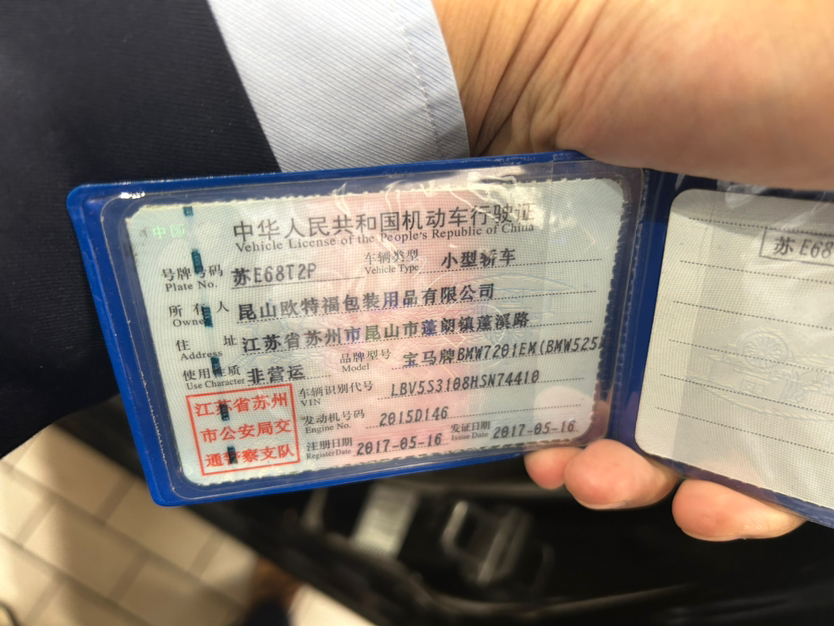 中国
中华人民共和国机动车行驶证
Vehicle License of the People's Republic of China
号牌号码 苏E68T2P 车辆类型 小型轿车
Plate No. Vehicle Type
所有人 昆山欧特福包装用品有限公司
Owner
住址 江苏省苏州市昆山市蓬朗镇蓬溪路
Address
使用性质 非营运 品牌型号 宝马牌BMW7201EM(BMW525
Use Character Model
车辆识别代号 LBV5S3108HSN74410
VIN
发动机号码 2015D146
Engine No.
注册日期 2017-05-16 发证日期 2017-05-16
Register Date Issue Date
江苏省苏州
市公安局交
通警察支队
苏E68